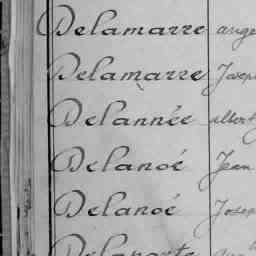 Delamarre ange
Delamarre Josep
Delannée Albert
Delanoé Jean
Delanoé Josep
Delaporte